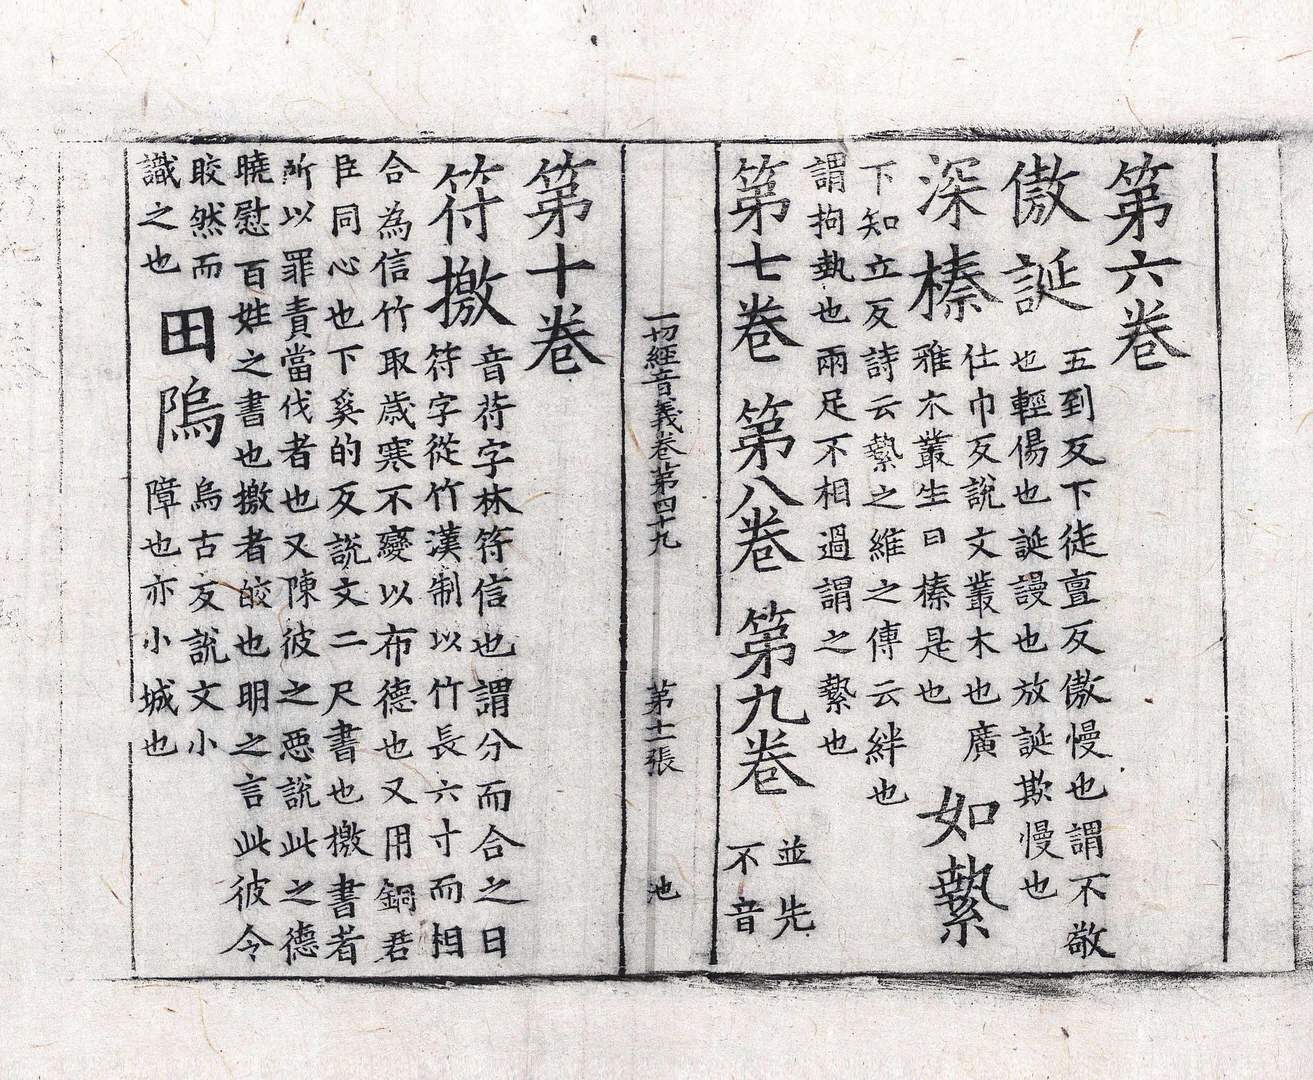 第六卷
傲誕
五到反下徒亶反傲慢也謂不敬
也輕傷也誕謾也放誕欺慢也
深榛
仕巾反說文叢木也廣
雅木叢生曰榛是也
如縶
下知立反詩云縶之維之傳云絆也
謂拘執也兩足不相過謂之縶也
第七卷 第八卷 第九卷
並先
不音
一切經音義卷第四十九 第十一張 池
第十卷
符撽
音苻字林符信也謂分而合之曰
符字從竹漢制以竹長六寸而相
合為信竹取歲寒不變以布德也又用銅君
臣同心也下奚的反說文二尺書也撽書者
所以罪責當伐者也又陳彼之惡說此之德
曉慰百姓之書也撽者皎也明之言此彼令
晈然而
識之也
田隖
烏古反說文小
障也亦小城也